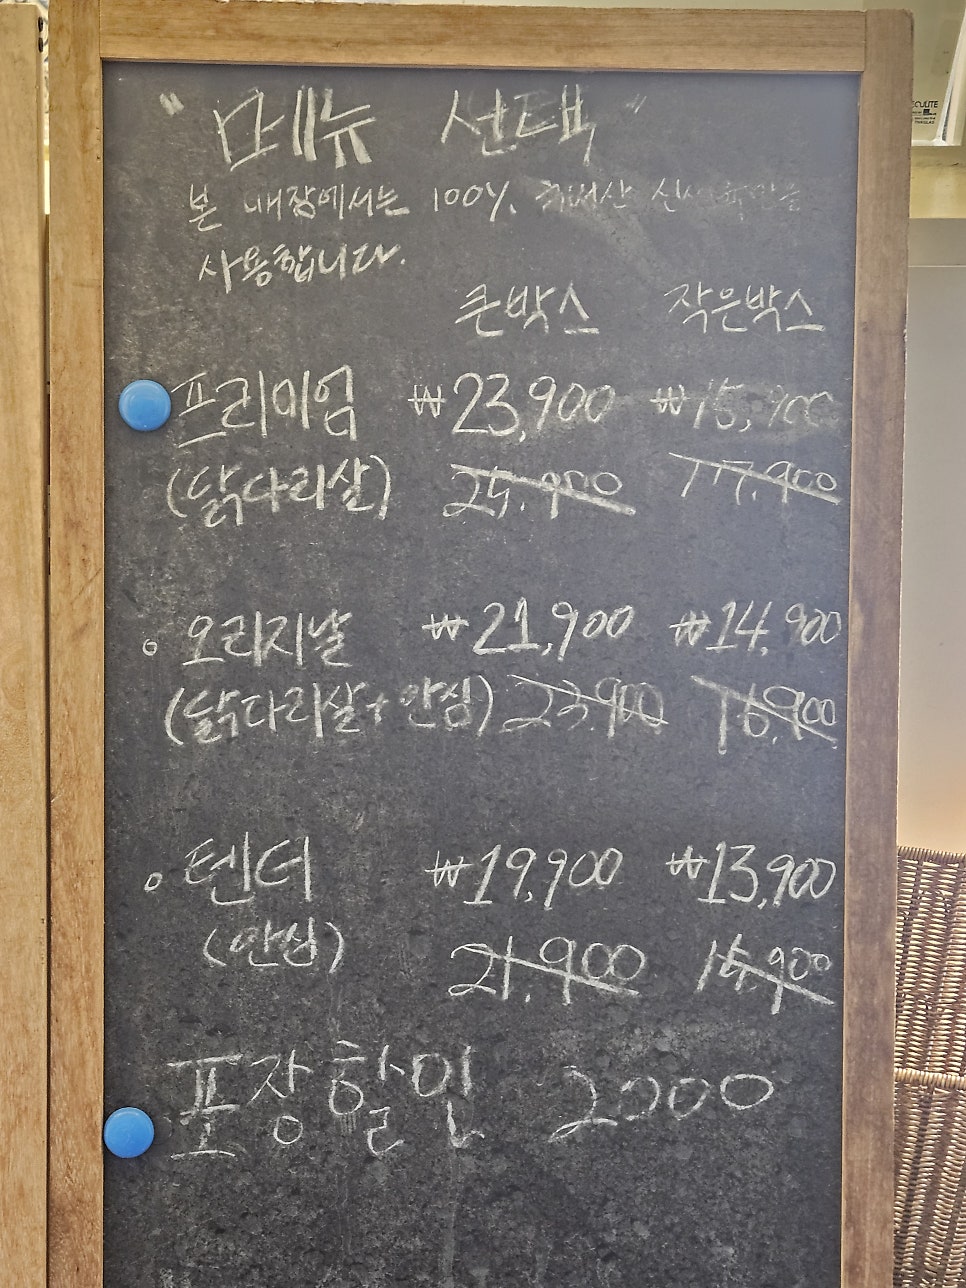 "메뉴 선택"
본 매장에서는 100%. 국내산 신선육만을
사용합니다.
큰박스 작은박스
프리미엄 ₩23,900 ₩15,900
(닭다리살) 25.900 17.900
오리지날 ₩21,900 ₩14,900
(닭다리살+안심) 23.900 16.900
텐더 ₩19,900 ₩13,900
(안심) 21.900 15.900
포장할인 2000